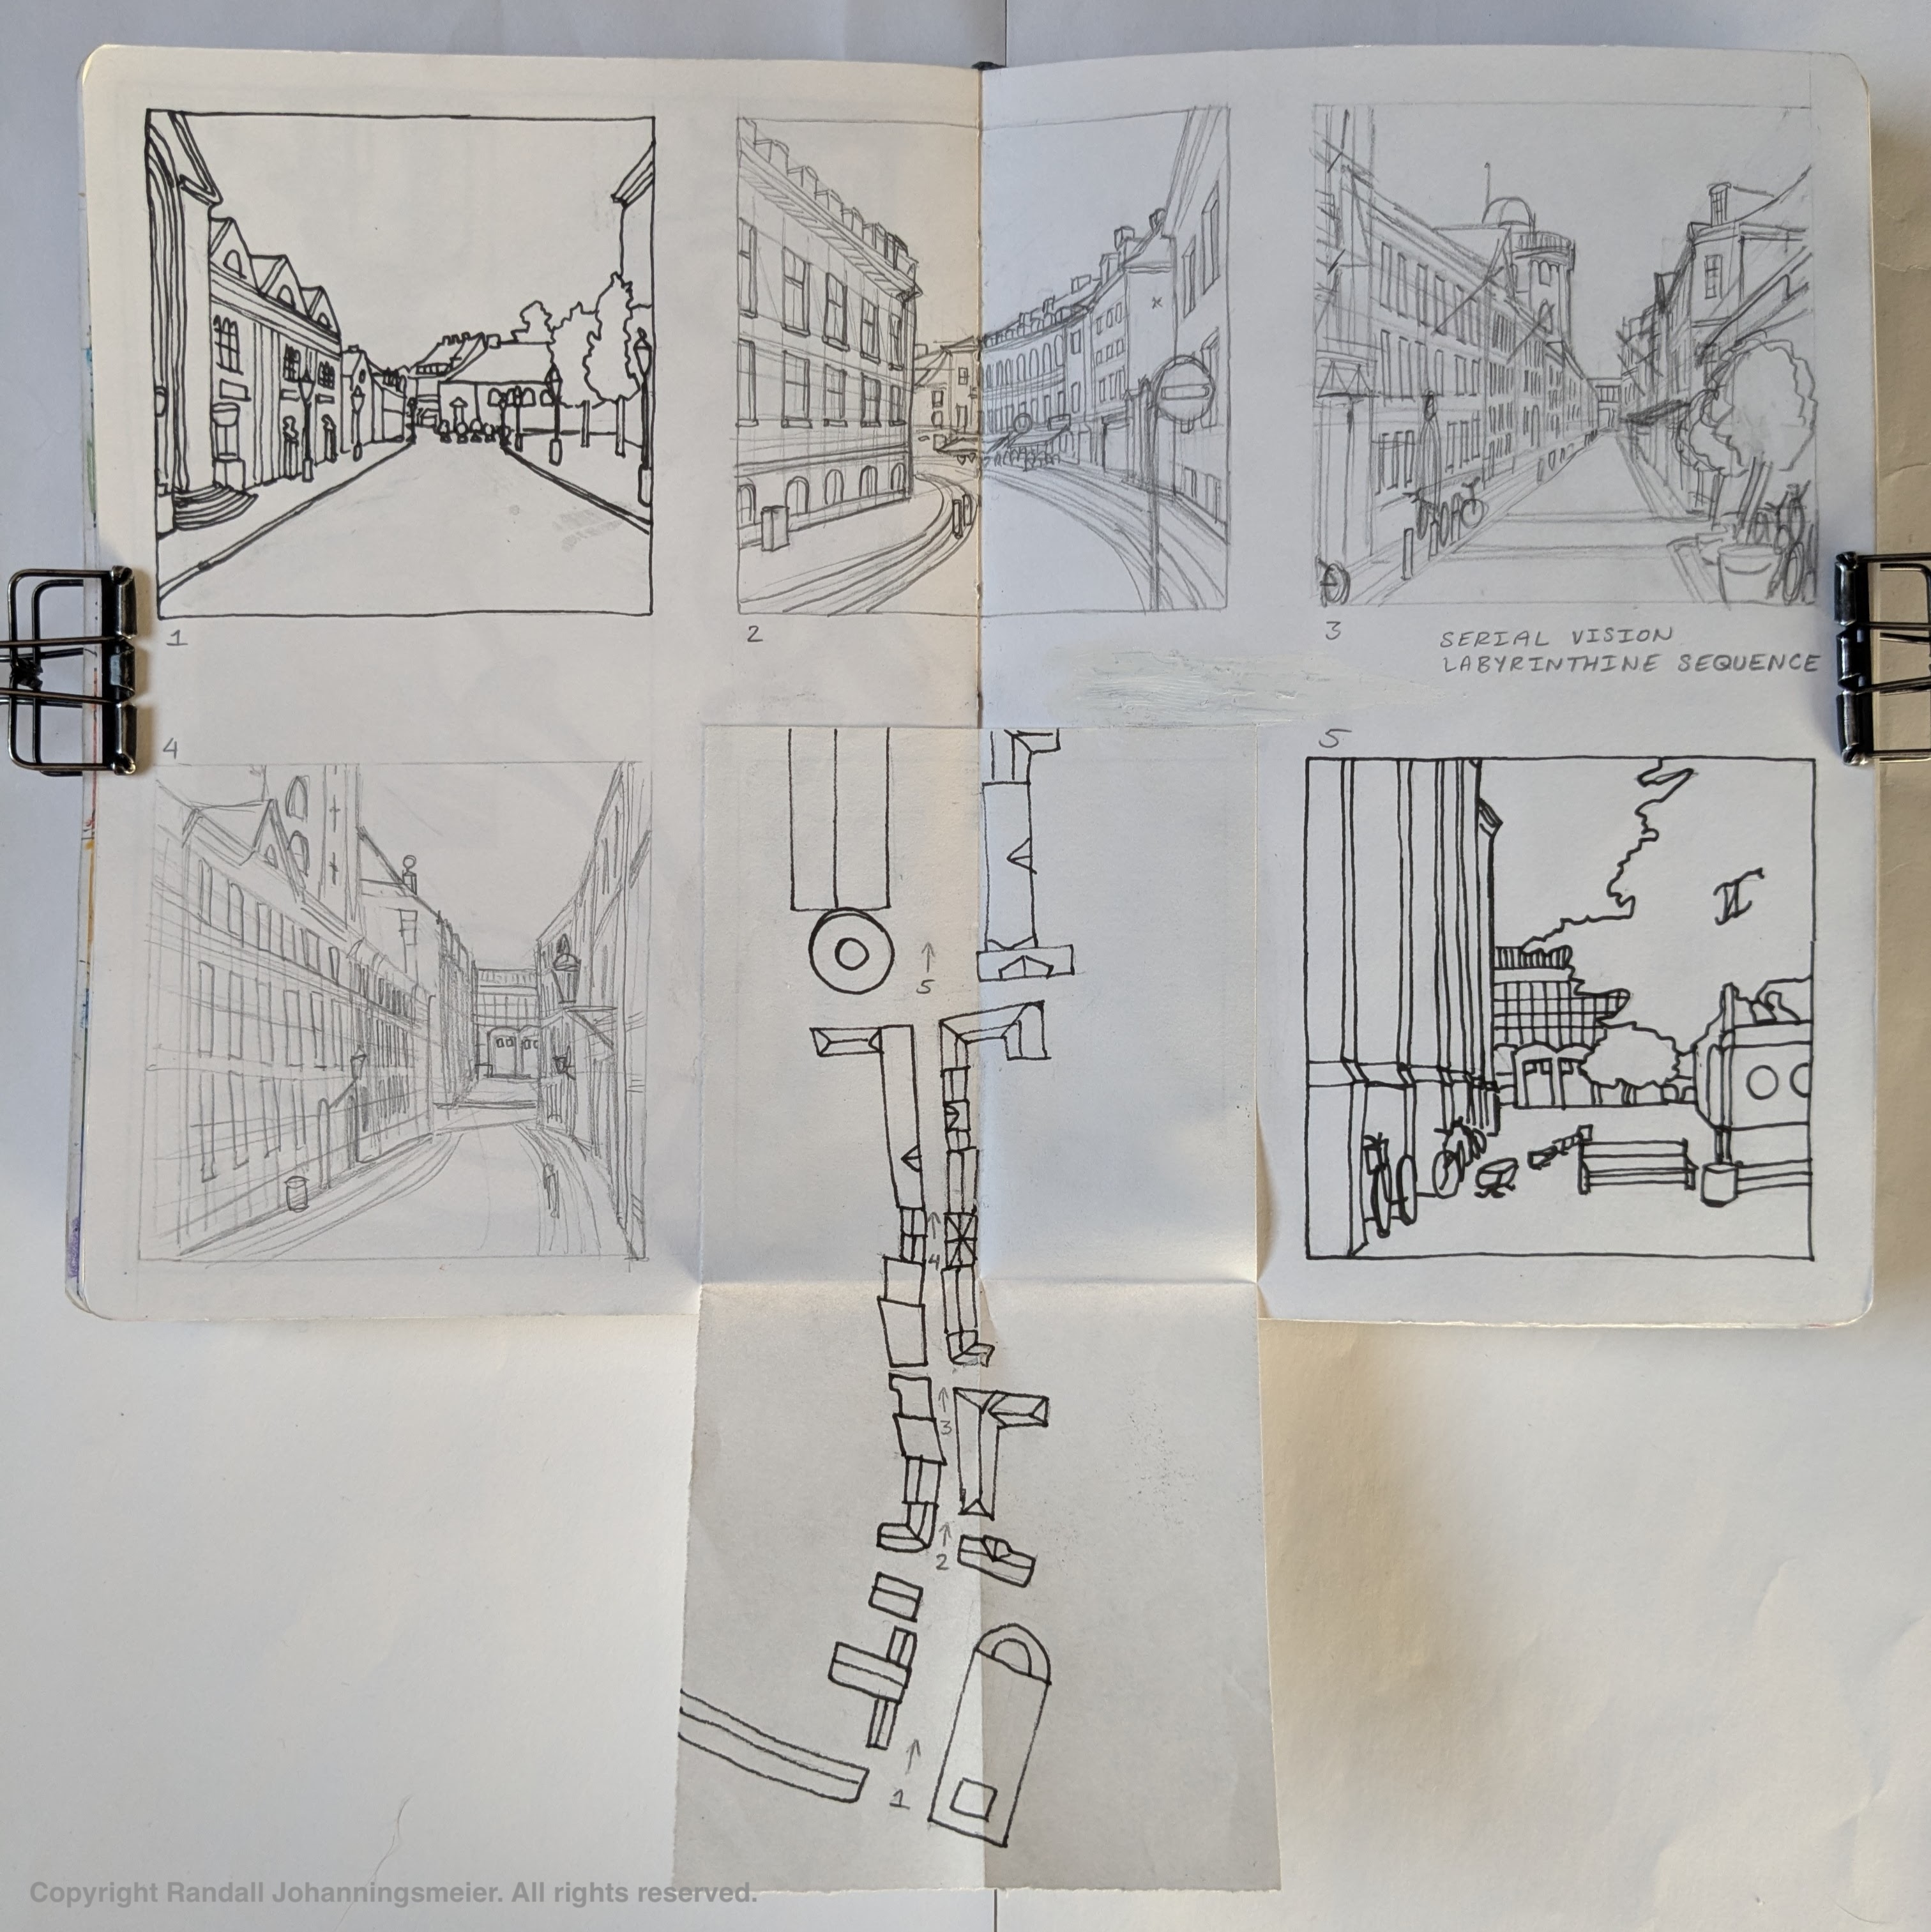 1
2
3
SERIAL VISION
LABYRINTHINE SEQUENCE
4
5
5
4
3
2
1
Copyright Randall Johanningsmeier. All rights reserved.